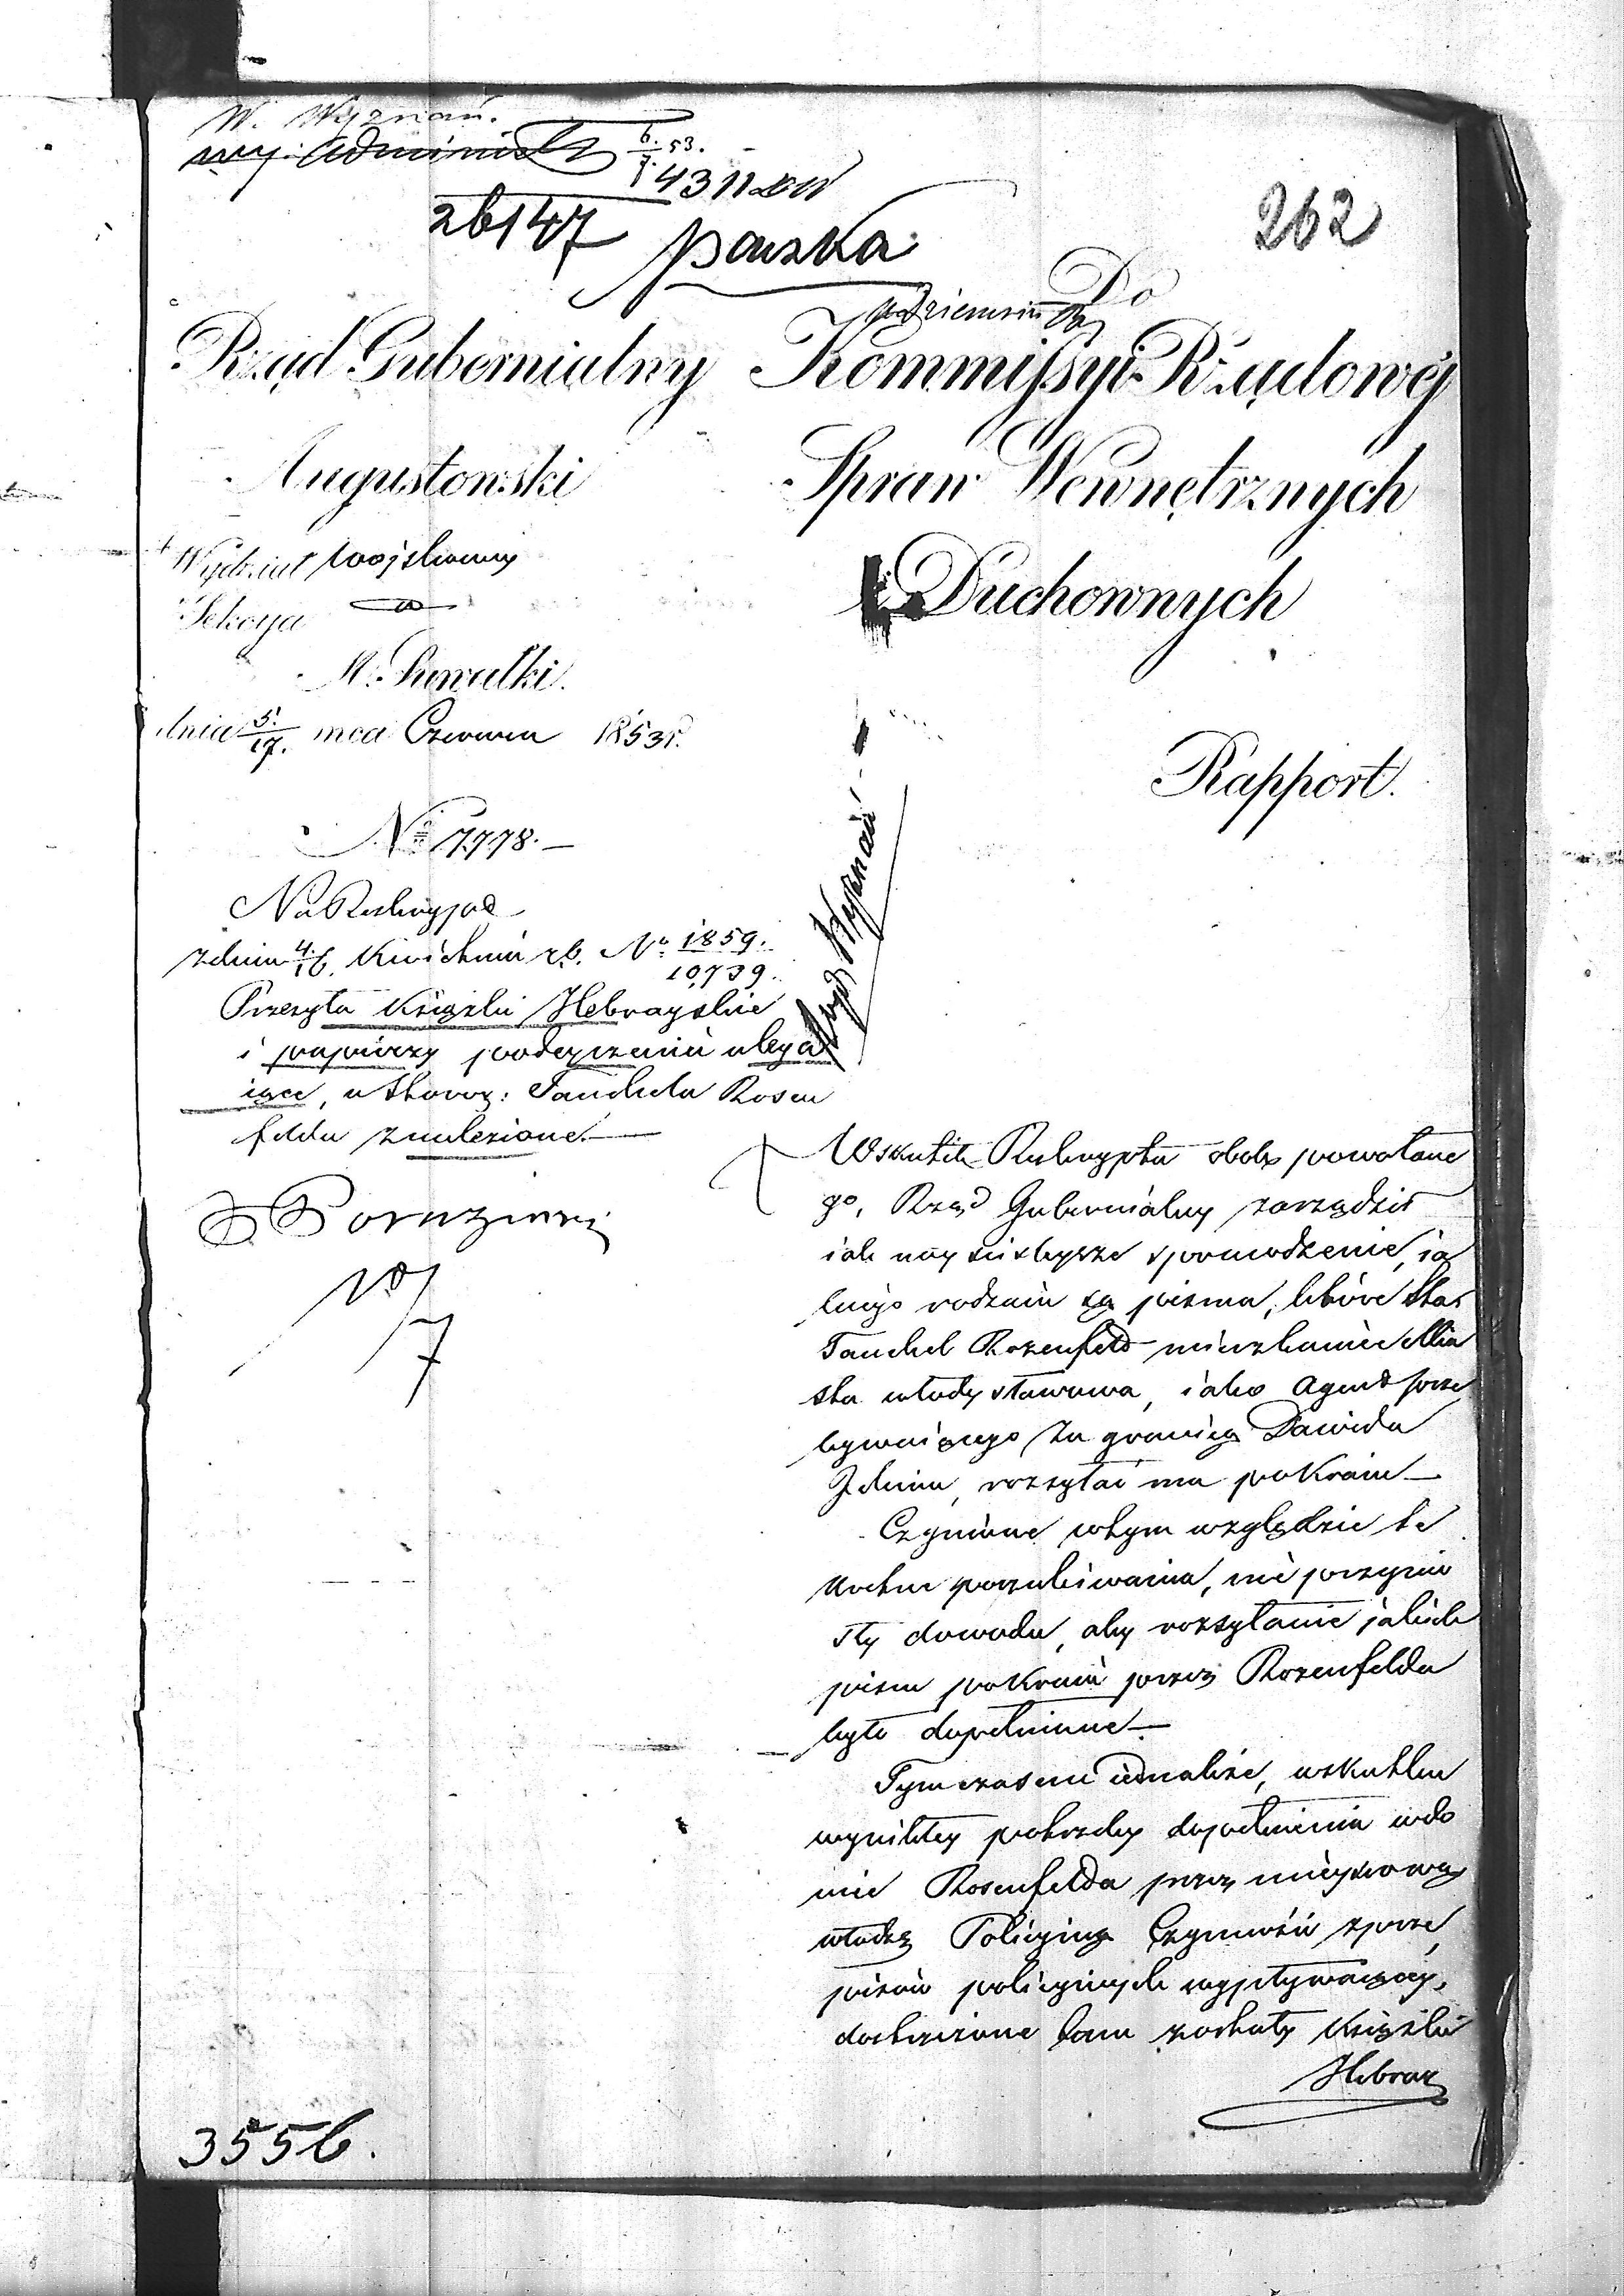 W. Wyznań.
6/7 53.
26147
paczka
262
Do
Rząd Gubernialny
Augustowski
Wydział Wojskowy
Sekcya
M. Suwałki.
dnia 5/17. mca Czerwca 1853 r.
No 7778.
Na Reskrypt
z dnia 4/16. Kwietnia r.b. No 1859./10,739.
Przesyła Książki Hebrayskie
i papiery podeyrzeniu ulega
iące, u Staroz: Tanchela Rosen
felda znalezione.
Kommissyi Rządowéj
Spraw Wewnętrznych
i Duchownych
Rapport.
Wydz Wyznań
Wskutek Reskryptu obok powołane
go, Rząd Gubernialny zarządził
iak nayściśleysze sprawdzenie, ia
kiego rodzaiu są pisma, które Star
Tanchel Rozenfeld mieszkaniec Mia
sta Władysławowa, iako Agent prze
bywaiącego za granicą Dawida
rozsyłać ma po Kraiu
Czynione w tym względzie se
kretne poszukiwania, nie przynio
sły dowodu, aby rozsyłanie jakich
pism po Kraiu przez Rozenfelda
było dopełniane
Tymczasem iednakże, w skutku
wynikłey potrzeby dopełnienia w do
mie Rosenfelda przez mieyscową
władzę Policyiną Czynności z prze
pisów policyinych wypływaiącey,
dostrzeżone tam zostały Książki
Hebray
3556.